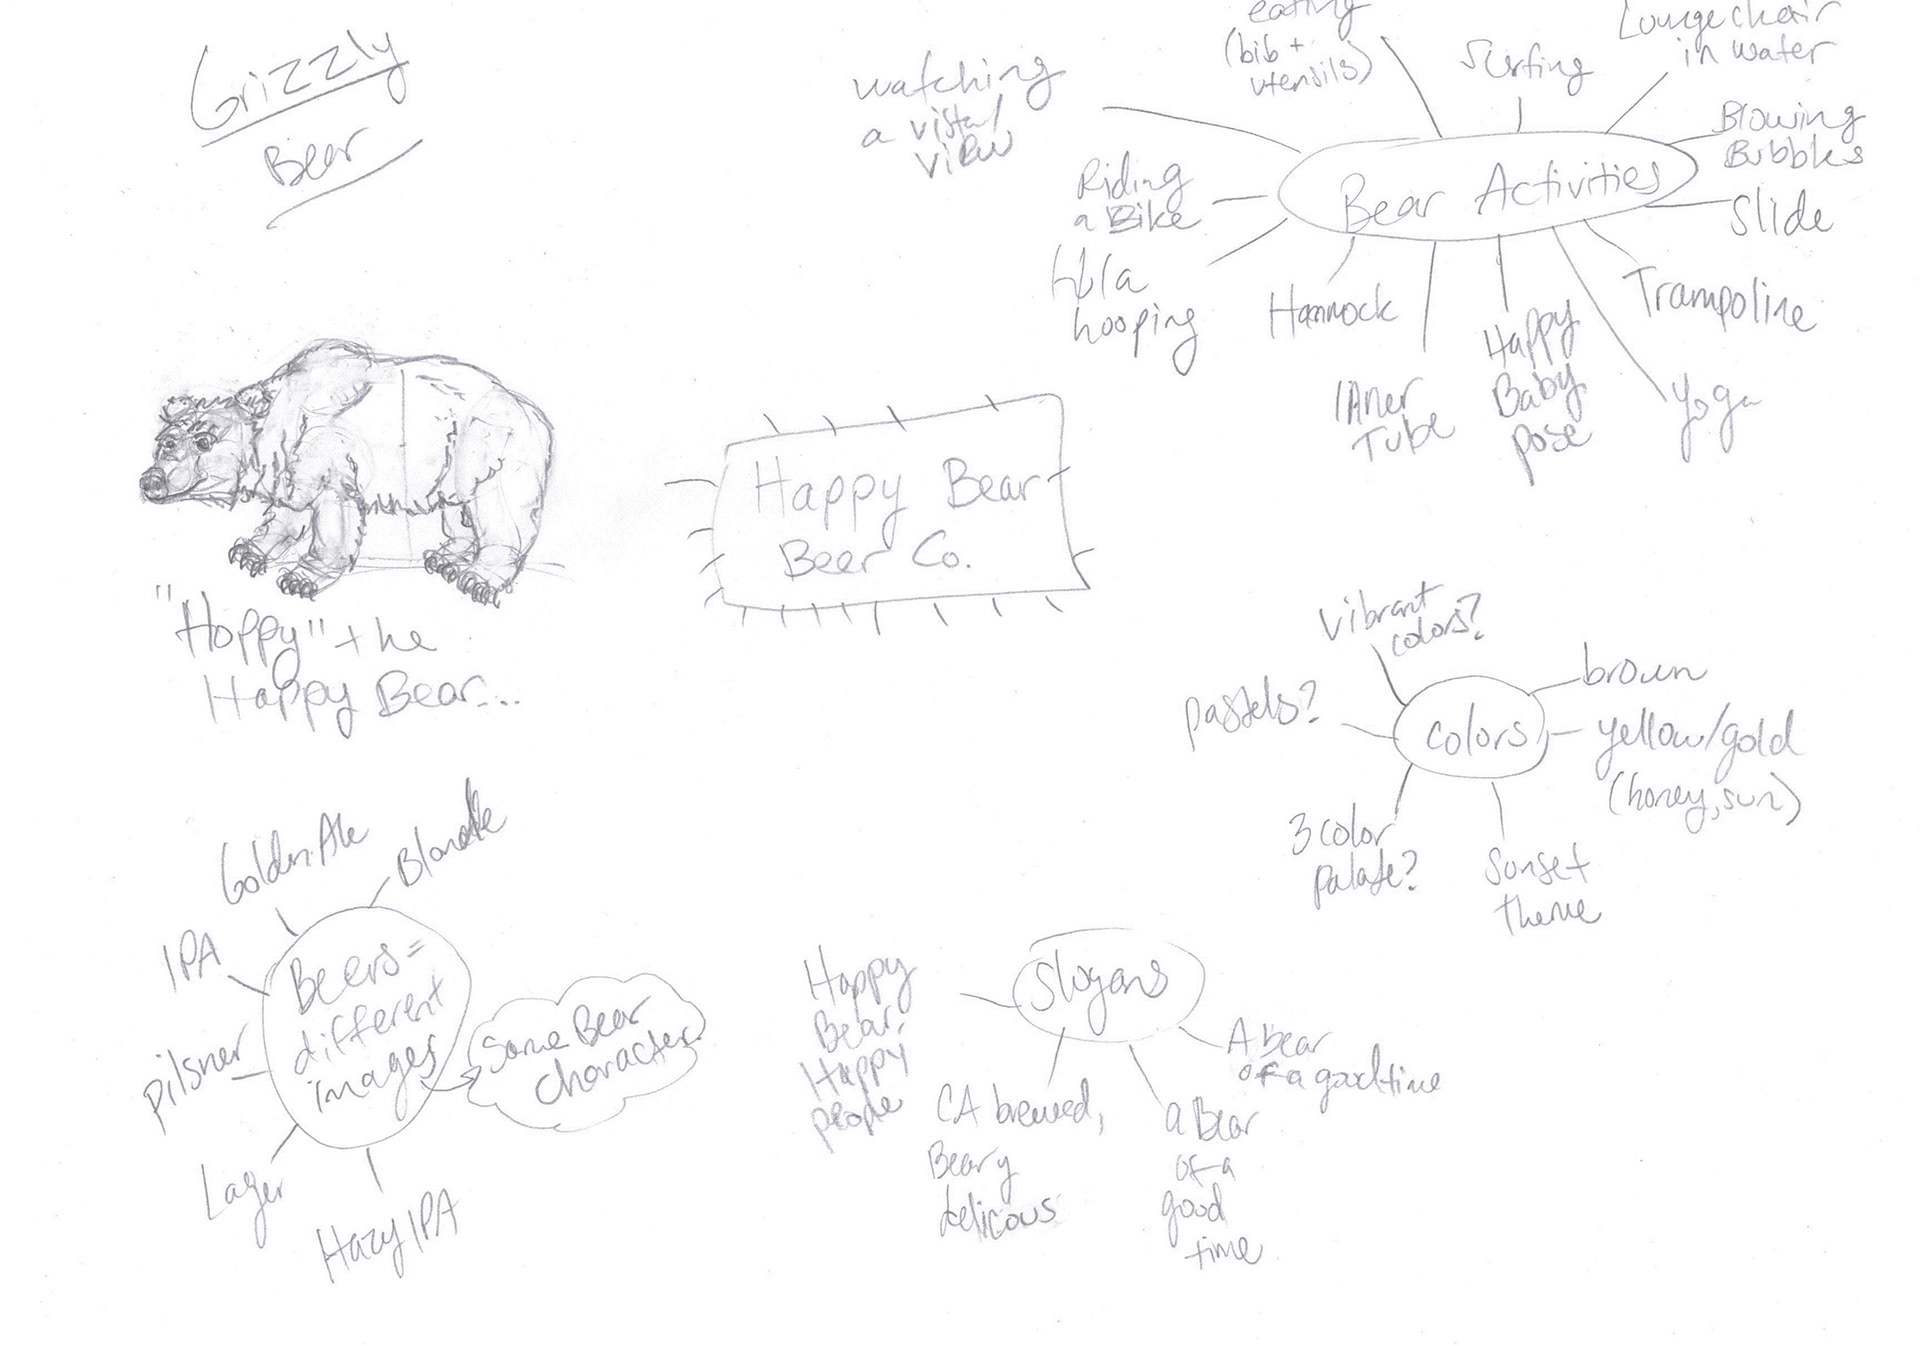 Grizzly
Bear
eating
(bib +
utensils)
Surfing
Lounge chair
in water
watching
a vista/
view
Blowing
Bubbles
Riding
a Bike
Bear Activities
Slide
Hula
hooping
Hammock
Inner
Tube
Happy
Baby
pose
Yoga
Trampoline
Happy Bear
Beer Co.
"Hoppy" the
Happy Bear...
vibrant
colors?
pastels?
colors
brown
yellow/gold
(honey, sun)
3 color
palate?
Sunset
theme
Golden Ale
Blonde
IPA
Pilsner
Lager
Hazy IPA
Beers =
different
images
Same Bear
Character
Slogans
Happy
Bear,
Happy
people
CA brewed,
Beary
delicous
a Bear
of a
good
time
A bear
of a good time